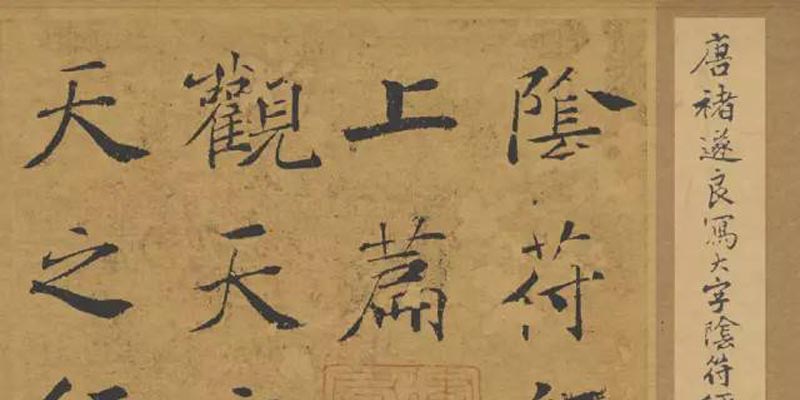 唐褚遂良寫大字陰符經
陰符經
上篇
觀天之
天之行